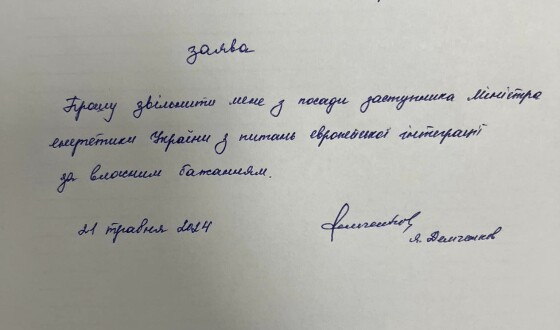 заява
Прошу звільнити мене з посади заступника Міністра
енергетики України з питань європейської інтеграції
за власним бажанням.
21 травня 2024
Я. Демченков